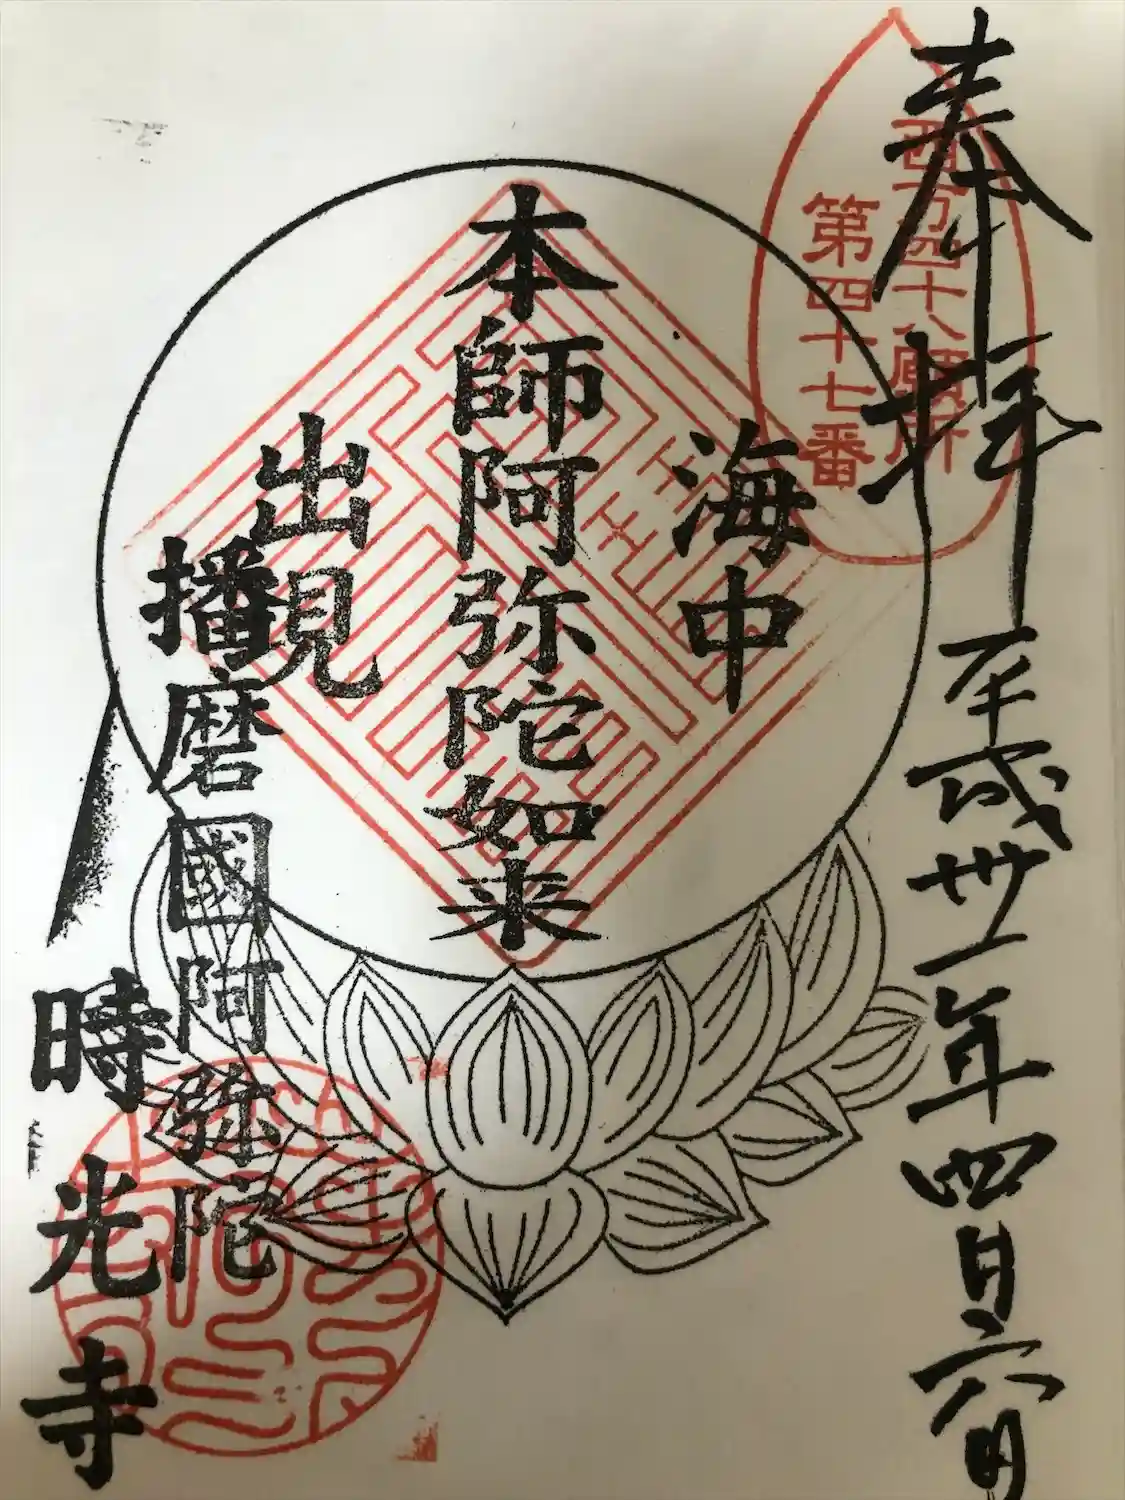 奉拝
平成卅一年四月六日
西方四十八願所
第四十七番
海中
本師阿弥陀如来
出見
播磨國阿弥陀
時光寺